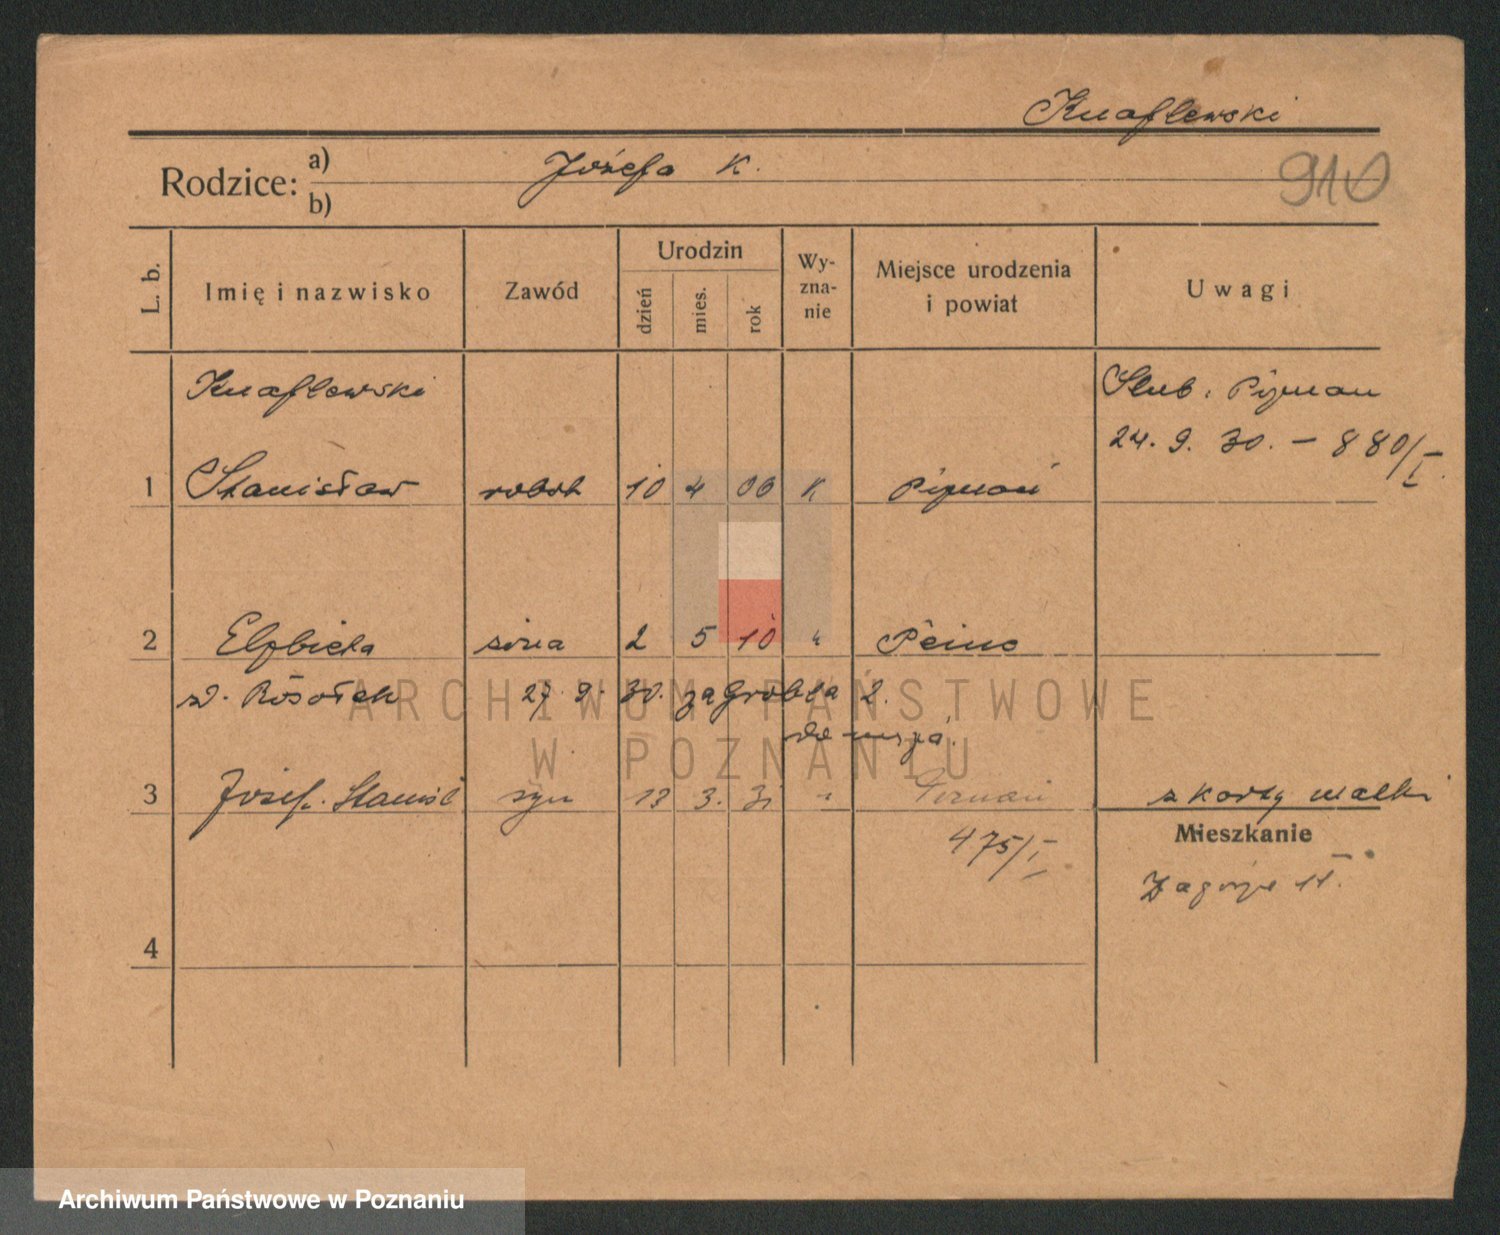 Knaflewski
Rodzice: a) Józefa K.
b)
910
L. b.
Imię i nazwisko
Zawód
Urodzin
dzień
mies.
rok
Wy-
zna-
nie
Miejsce urodzenia
i powiat
Uwagi
Knaflewski
Ślub.
24. 9. 30. — 880/I
1 Stanisław robot 10 4 06 K
2 Elżbieta żona 2 5 10 "
27. 9. 30. Zagrobla 2.
3 Józef. Stanisł syn 13 3. 31 " Poznań z karty matki
475/I
Mieszkanie
Zagórze 11.
4
ARCHIWUM PAŃSTWOWE
W POZNANIU
Archiwum Państwowe w Poznaniu